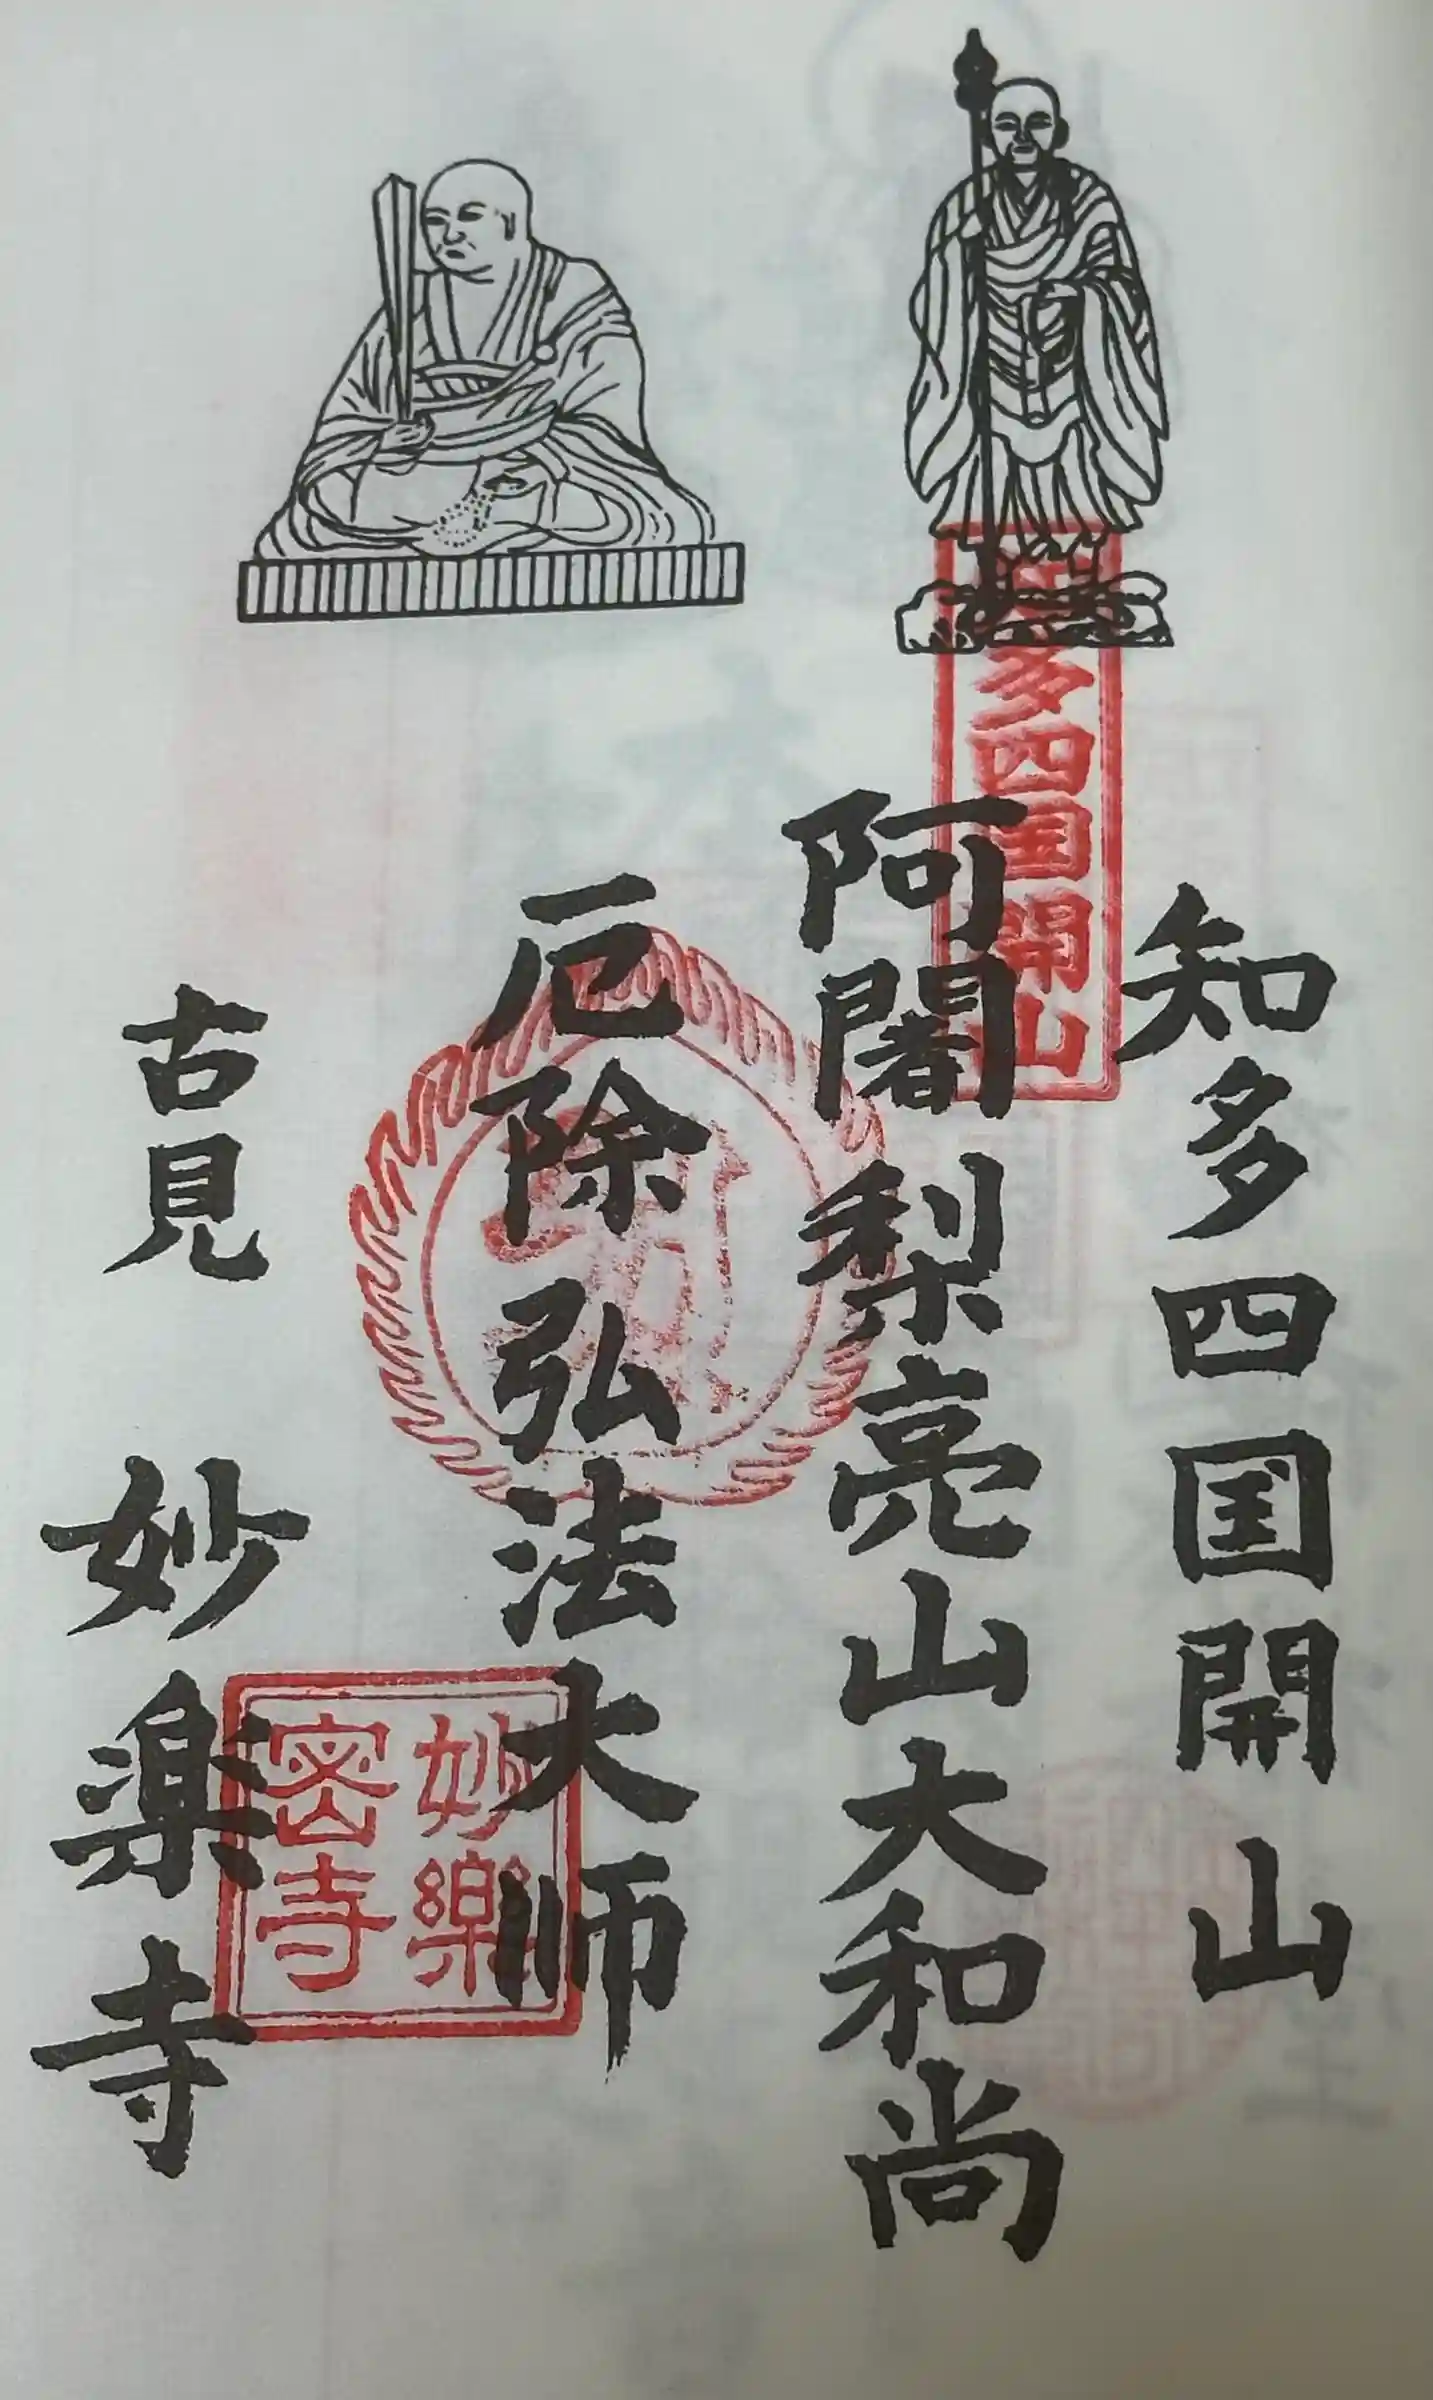 知多四国開山
阿闍梨亮山大和尚
厄除弘法大師
古見 妙楽寺
多四国開山
妙樂
密寺